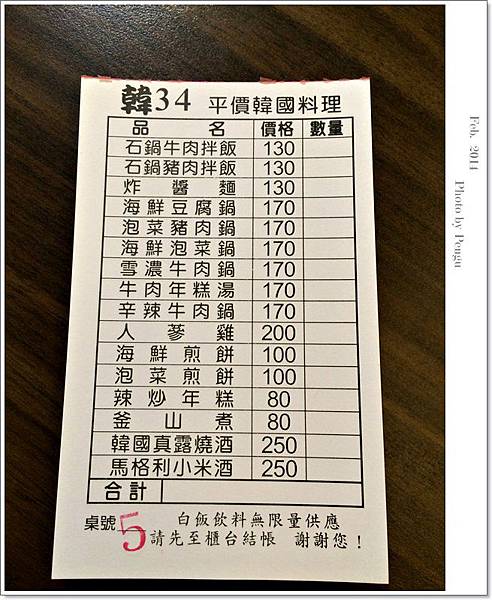 韓34 平價韓國料理
品名 價格 數量
石鍋牛肉拌飯 130
石鍋豬肉拌飯 130
炸醬麵 130
海鮮豆腐鍋 170
泡菜豬肉鍋 170
海鮮泡菜鍋 170
雪濃牛肉鍋 170
牛肉年糕湯 170
辛辣牛肉鍋 170
人蔘雞 200
海鮮煎餅 100
泡菜煎餅 100
辣炒年糕 80
釜山煮 80
韓國真露燒酒 250
馬格利小米酒 250
合計
桌號 5 白飯飲料無限量供應
請先至櫃台結帳 謝謝您！
Feb. 2014
Photo by Pengu